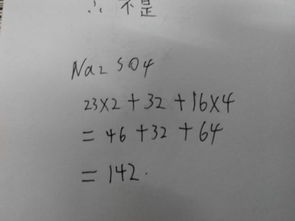 ∴ 不是
Na2 SO4
23×2+32+16×4
=46+32+64
=142.